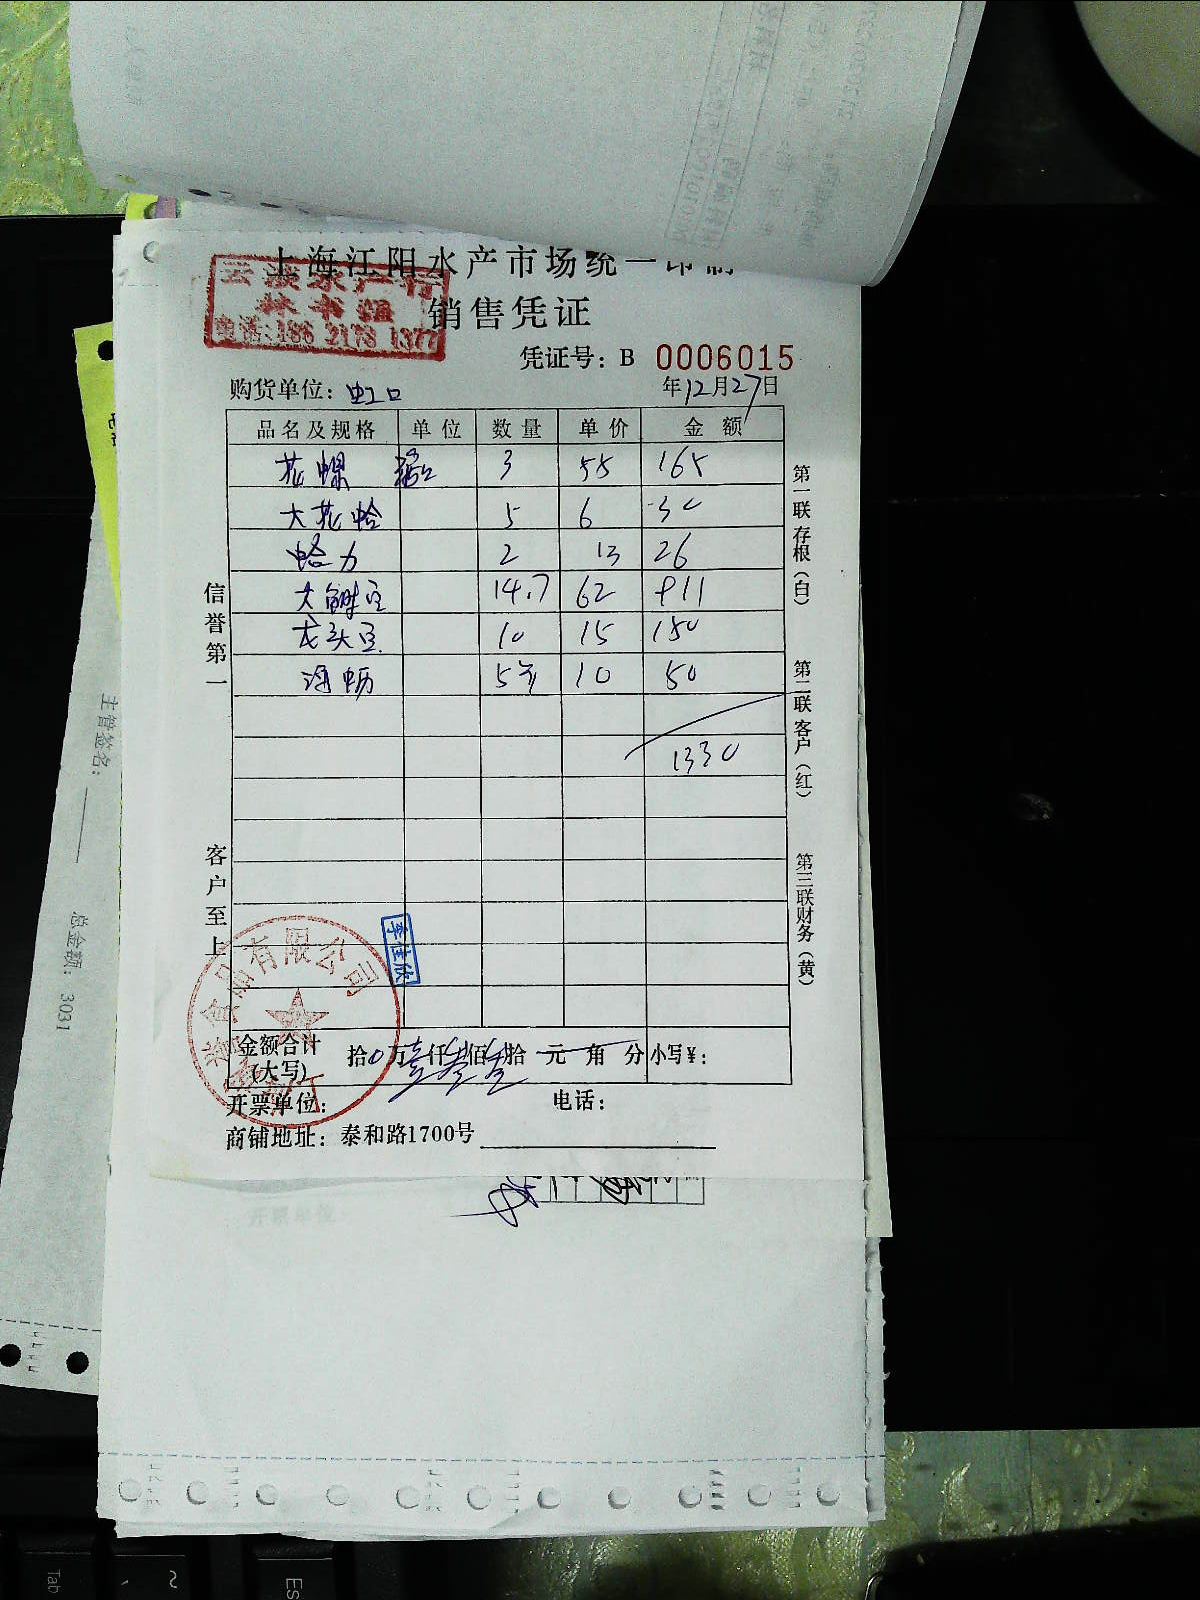 上海江阳水产市场统一印制
水产行
林书
电话:186 2178 1377
销售凭证
凭证号：B 0006015
购货单位：虹口
年12月27日
品名及规格 单位 数量 单价 金额
花螺 3 55 165
大花蛤 5 6 30
蛤力 2 13 26
大 14.7 62 911
龙头 10 15 150
海蛎 5 10 50
1330
信誉第一
客户至上
第一联存根（白）
第二联客户（红）
第三联财务（黄）
食品有限公司
李佳欣
金额合计(大写) 拾0万壹仟叁佰叁拾元角分 小写￥：
开票单位： 电话：
商铺地址：泰和路1700号
主管签名：
总金额：3031
开票单位
Tab
~
Es